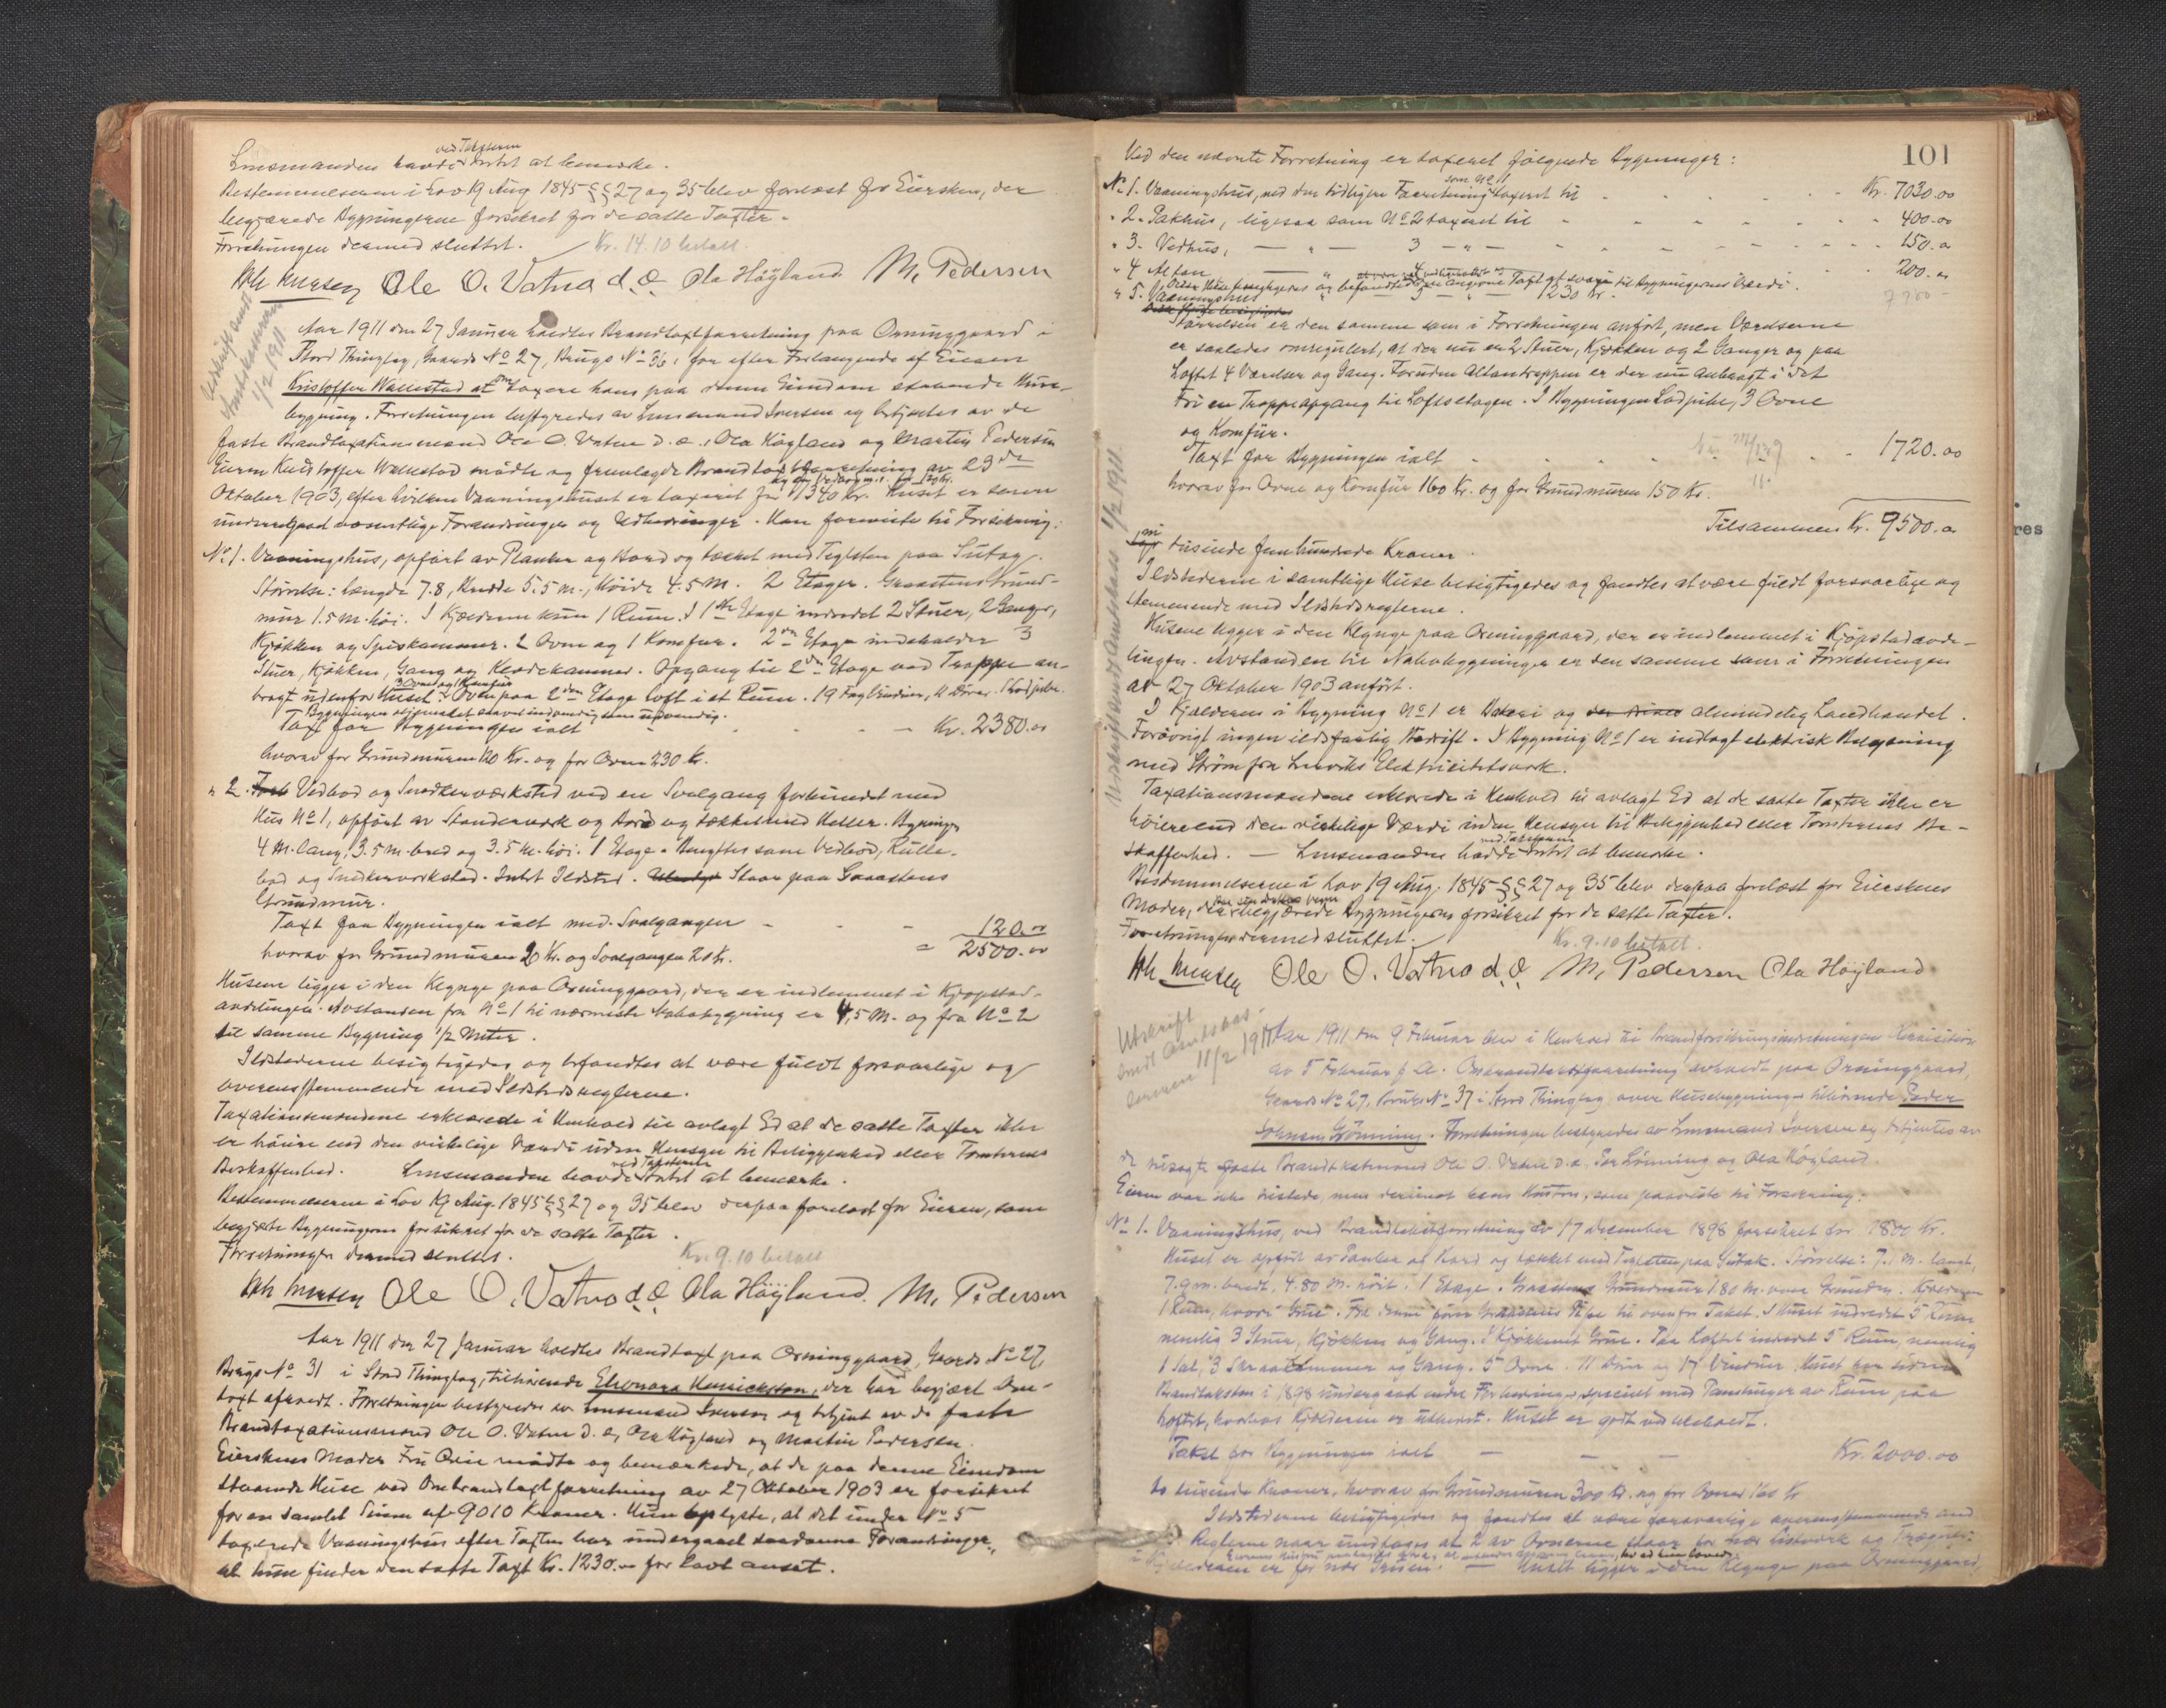 ved Taksterne
Lensmanden havde intet at bemerke.
Bestemmelserne i Lov 19 Aug 1845 §§ 27 og 35 blev forelæst for Eiersken, der
begjærede Bygningerne forsikret for de satte Taxter.
Forretningen dermed sluttet. Kr. 14.10 betalt.
Ole O. Vatna d.æ. Ola Höyland M. Pedersen
Utskrift sendt
Amtskassereren
1/2 1911.
Aar 1911 den 27 Januar holdtes Brandtaxtforretning paa Orninggaard i
Stord Thinglag, Gaards No 27, Brugs No 36, for efter Forlangende af Eieren
Kristoffer Wallestad at taxere hans paa denne Eiendom staaende Huse-
bygning. Forretningen bestyredes av Lensmand Iversen og betjentes av de
faste Brandtaxationsmænd Ole O. Vatna d.æ., Ola Höyland og Martin Pedersen
Eieren Kristoffer Wallestad mödte og fremlagde Brandtaxtforretning av 29de
Oktober 1903, efter hvilken Vaaningshuset er taxeret for 1340 Kr. Huset er senere
undergaaet væsentlige Forandringer og Udbedringer. Han foreviste til Forsikring:
No 1. Vaaningshus, opfört av Planker og Bord og tækket med Teglsten paa Sutag.
Störrelse: længde 7.8, Bredde 5.5 m., Höide 4.5 m. 2 Etager. Graastens Grund-
mur 1.5 m. höi. I Kjælderen kun 1 Rum. I 1ste Etage indredet 2 Stuer, 2 Ganger,
Kjökken og Spiskammer. 2 Ovne og 1 Komfur. 2den Etage indeholder 3
Stuer, Kjökken, Gang og Klædekammer. Opgang til 2den Etage ved Trappe an-
3 Ovne og 1 Komfur
bragt udenfor Huset. Over paa 2den Etage Loft i et Rum. 19 Fag Vinduer, 11 Dörer. 1 Lodpibe.
Bygningen oljemalet saavel indvendig som udvendig.
Taxt for Bygningen ialt - - - Kr. 2380.00
hvorav for Grundmuren 120 Kr. og for Ovne 230 Kr.
" 2. Vedbod og Snedkerværksted ved en Svalgang forbundet med
Hus No 1, opfört av Standerverk og Bord og tækket med Heller. Bygningen
4 M. lang, 3.5 m. bred og 3.5 m. höi. 1 Etage. Benyttes som Vedbod, Rulle-
bod og Snedkerverksted. Intet Ildsted. Staar paa Graastens
Grundmur.
Taxt paa Bygningen ialt med Svalgangen - - - 120.00
hvorav for Grundmuren 20 Kr. og Svalgangen 20 Kr. = 2500.00
Husene ligger i den Klynge paa Orninggaard, der er indlemmet i Kjøpstad-
avdelingen. Avstanden fra No 1 til nærmeste Nabobygning er 4,5 M. og fra No 2
til samme Bygning 1/2 Meter.
Ildstederne besigtigedes og befandtes at være fuldt forsvarlige og
overensstemmende med Ildstedsreglerne.
Taxationsmændene erklærede i Henhold til avlagt Ed at de satte Taxter ikke
er höiere end den virkelige Værdi uden Hensyn til Beliggenhed eller Tomternes
ved Taksterne
Beskaffenhed. Lensmanden havde intet at bemærke.
Bestemmelserne i Lov 19 Aug. 1845 §§ 27 og 35 blev derpaa forelæst for Eieren, som
begjærte Bygningerne forsikret for de satte Taxter.
Forretningen dermed sluttet. Kr. 9.10 betalt
Ole O. Vatna d.æ. Ola Höyland. M. Pedersen
Aar 1911 den 27 Januar holdtes Brandtaxt paa Orninggaard, Gaards No 27,
Brugs No 31 i Stord Thinglag, tilhörende Eleonora Henrickson, der har begjært Om-
taxt afholdt. Forretningen bestyredes av Lensmand Iversen og betjent av de faste
Brandtaxationsmænd Ole O. Vatna d.æ., Ola Höyland og Martin Pedersen.
Eierskens Moder Fru mödte og bemærkede, at de paa denne Eiendom
staaende Huse ved Ombrandtaxtforretning av 27 Oktober 1903 er forsikret
for en samlet Sum af 9010 Kroner. Hun oplyste, at det under No 5
taxerede Vaaningshus efter Taxten har undergaaet saadanne Forandringer,
at hun finder den satte Taxt Kr. 1230.00 for lavt ansat.
101
Ved den nævnte Forretning er taxeret fölgende Bygninger:
som No 1
No 1. Vaaningshus, ved den tidligere Forretning taxeret til - - - Kr. 7030.00
" 2. Pakhus, ligesaa som No 2 taxeret til - - - 400.00
" 3. Vedhus, — " — 3 — " — - - - 150.00
" 4 Altan — " 4 - - 200.00
Disse Huse besigtigedes og befandtes den angivne Taxt at svare til Bygningernes Værdi.
" 5. Vaaningshus " 5 — " — 1230 Kr. 7780 -
Störrelsen er den samme som i Forretningen anfört, men Værelserne
er saaledes omreguleret, at der nu er 2 Stuer, Kjøkken og 2 Ganger og paa
Loftet 4 Værelser og Gang. Foruden Altantrappen er der nu anbragt i det
Fri en Trappeopgang til Loftsetagen. I Bygningen Lodpibe, 3 Ovne
og Komfür.
Taxt for Bygningen ialt - - - 1720.00
hvorav for Ovne og Komfür 160 Kr. og for Grundmuren 150 Kr.
Tilsammen Kr. 9500.00
ni
tusinde fem hundrede Kroner.
Utskrift sendt Amtskass. 1/2 1911.
Ildstederne i samtlige Huse besigtigedes og fandtes at være fuldt forsvarlige og
stemmende med Ildstedsreglerne.
Husene ligger i den Klynge paa Orninggaard, der er indlemmet i Kjöpstadavde-
lingen. Avstanden til Nabobygninger er den samme som i Forretningen
av 27 Oktober 1903 anfört.
I Kjælderen i Bygning No 1 er Bakeri og almindelig Landhandel.
Forövrigt ingen ildsfarlig Bedrift. I Bygning No 1 er indlagt elektrisk Belysning
med Ström fra Lerviks Elektricitetsverk.
Taxationsmændene erklærede i Henhold til avlagt Ed at de satte Taxter ikke er
höiere end den virkelige Værdi uden Hensyn til Beliggenhed eller Tomternes Be-
ved Taksterne
skaffenhed. — Lensmanden hadde intet at bemerke.
Bestemmelserne i Lov 19 Aug. 1845 §§ 27 og 35 blev derpaa forelæst for Eierskens
Moder, der begjærede Bygningerne forsikret for de satte Taxter.
Forretningen dermed sluttet. Kr. 9.10 betalt.
Ole O. Vatna d.æ. M. Pedersen Ola Höyland
Utskrift
sendt Amtskas-
sereren 11/2 1911
Aar 1911 den 9 Februar blev i Henhold til Brandforsikringsindretningens Rekvisition
av 5 Februar Ombrandtakstforretning avholdt paa Orninggaard,
Gaards No 27, Bruks No 37 i Stord Thinglag over Husebygninger tilhörende Peder
Johnsen Grönning. Forretningen bestyredes av Lensmand Iversen og betjentes av
de faste Brandtakstmænd Ole O. Vatna d.æ. Per Lönning og Ola Höyland.
Eieren var ikke tilstede, men derimot hans Hustru, som paaviste til Forsikring:
No 1. Vaaningshus, ved Brandtakstforretning av 17 December 1898 forsikret for 1800 Kr.
Huset er opfört av Planker og Bord og tækket med Teglsten paa Sutak. Störrelse: 7.1 M. langt,
7.9 m. bredt, 4.80 M. höit. 1 Etage. Graastens Grundmur 1.80 M. over Grunden. Kjælderen
1 Rum, hvori Grue. Fra denne förer Pibe til ovenfor Taket. I Huset indredet 5 Rum
nemlig 3 Stuer, Kjökken og Gang. I Kjökkenet Grue. Paa Loftet indredet 5 Rum, nemlig
1 Sal, 3 Skraakammer og Gang. 5 Ovne. 11 Döre og 17 Vinduer. Huset har siden
Brandtaksten i 1898 undergaaet endel Forbedringer, specielt med Panelinger av Rum paa
Loftet, hvorhos Kjælderen er utbedret. Huset er godt vedlikeholdt.
Takst for Bygningen ialt — — — Kr. 2000.00
to tusinde Kroner, hvorav for Grundmuren 300 Kr. og for Ovne 160 Kr
Ildstederne besigtigedes og fandtes at være forsvarlige overensstemmende med
Reglerne naar undtages at 2 av Ovnene staar for nær Listverk og
er for nær Gruen. — Huset ligger i den Klynge paa Orninggaard,